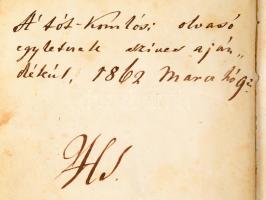 A' tót-Komlósi olvasó
egyletnek szives aján„
dékúl, 1862 Marcz hó 9én
HS.